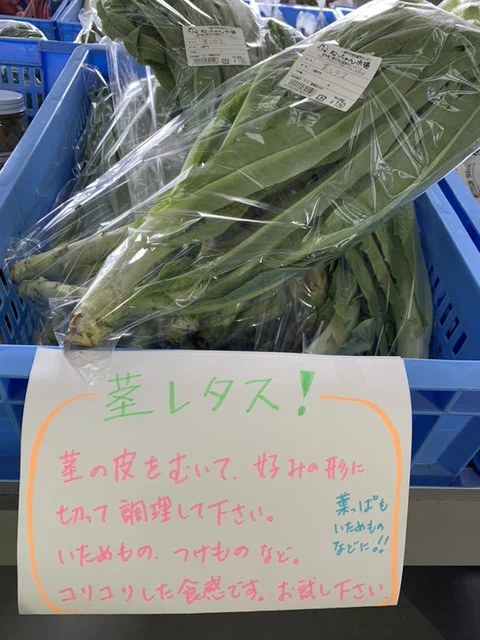 茎レタス!
茎の皮をむいて、好みの形に
切って調理して下さい。
いためもの、つけものなど。
コリコリした食感です。お試し下さい
葉っぱも
いためもの
などに!!